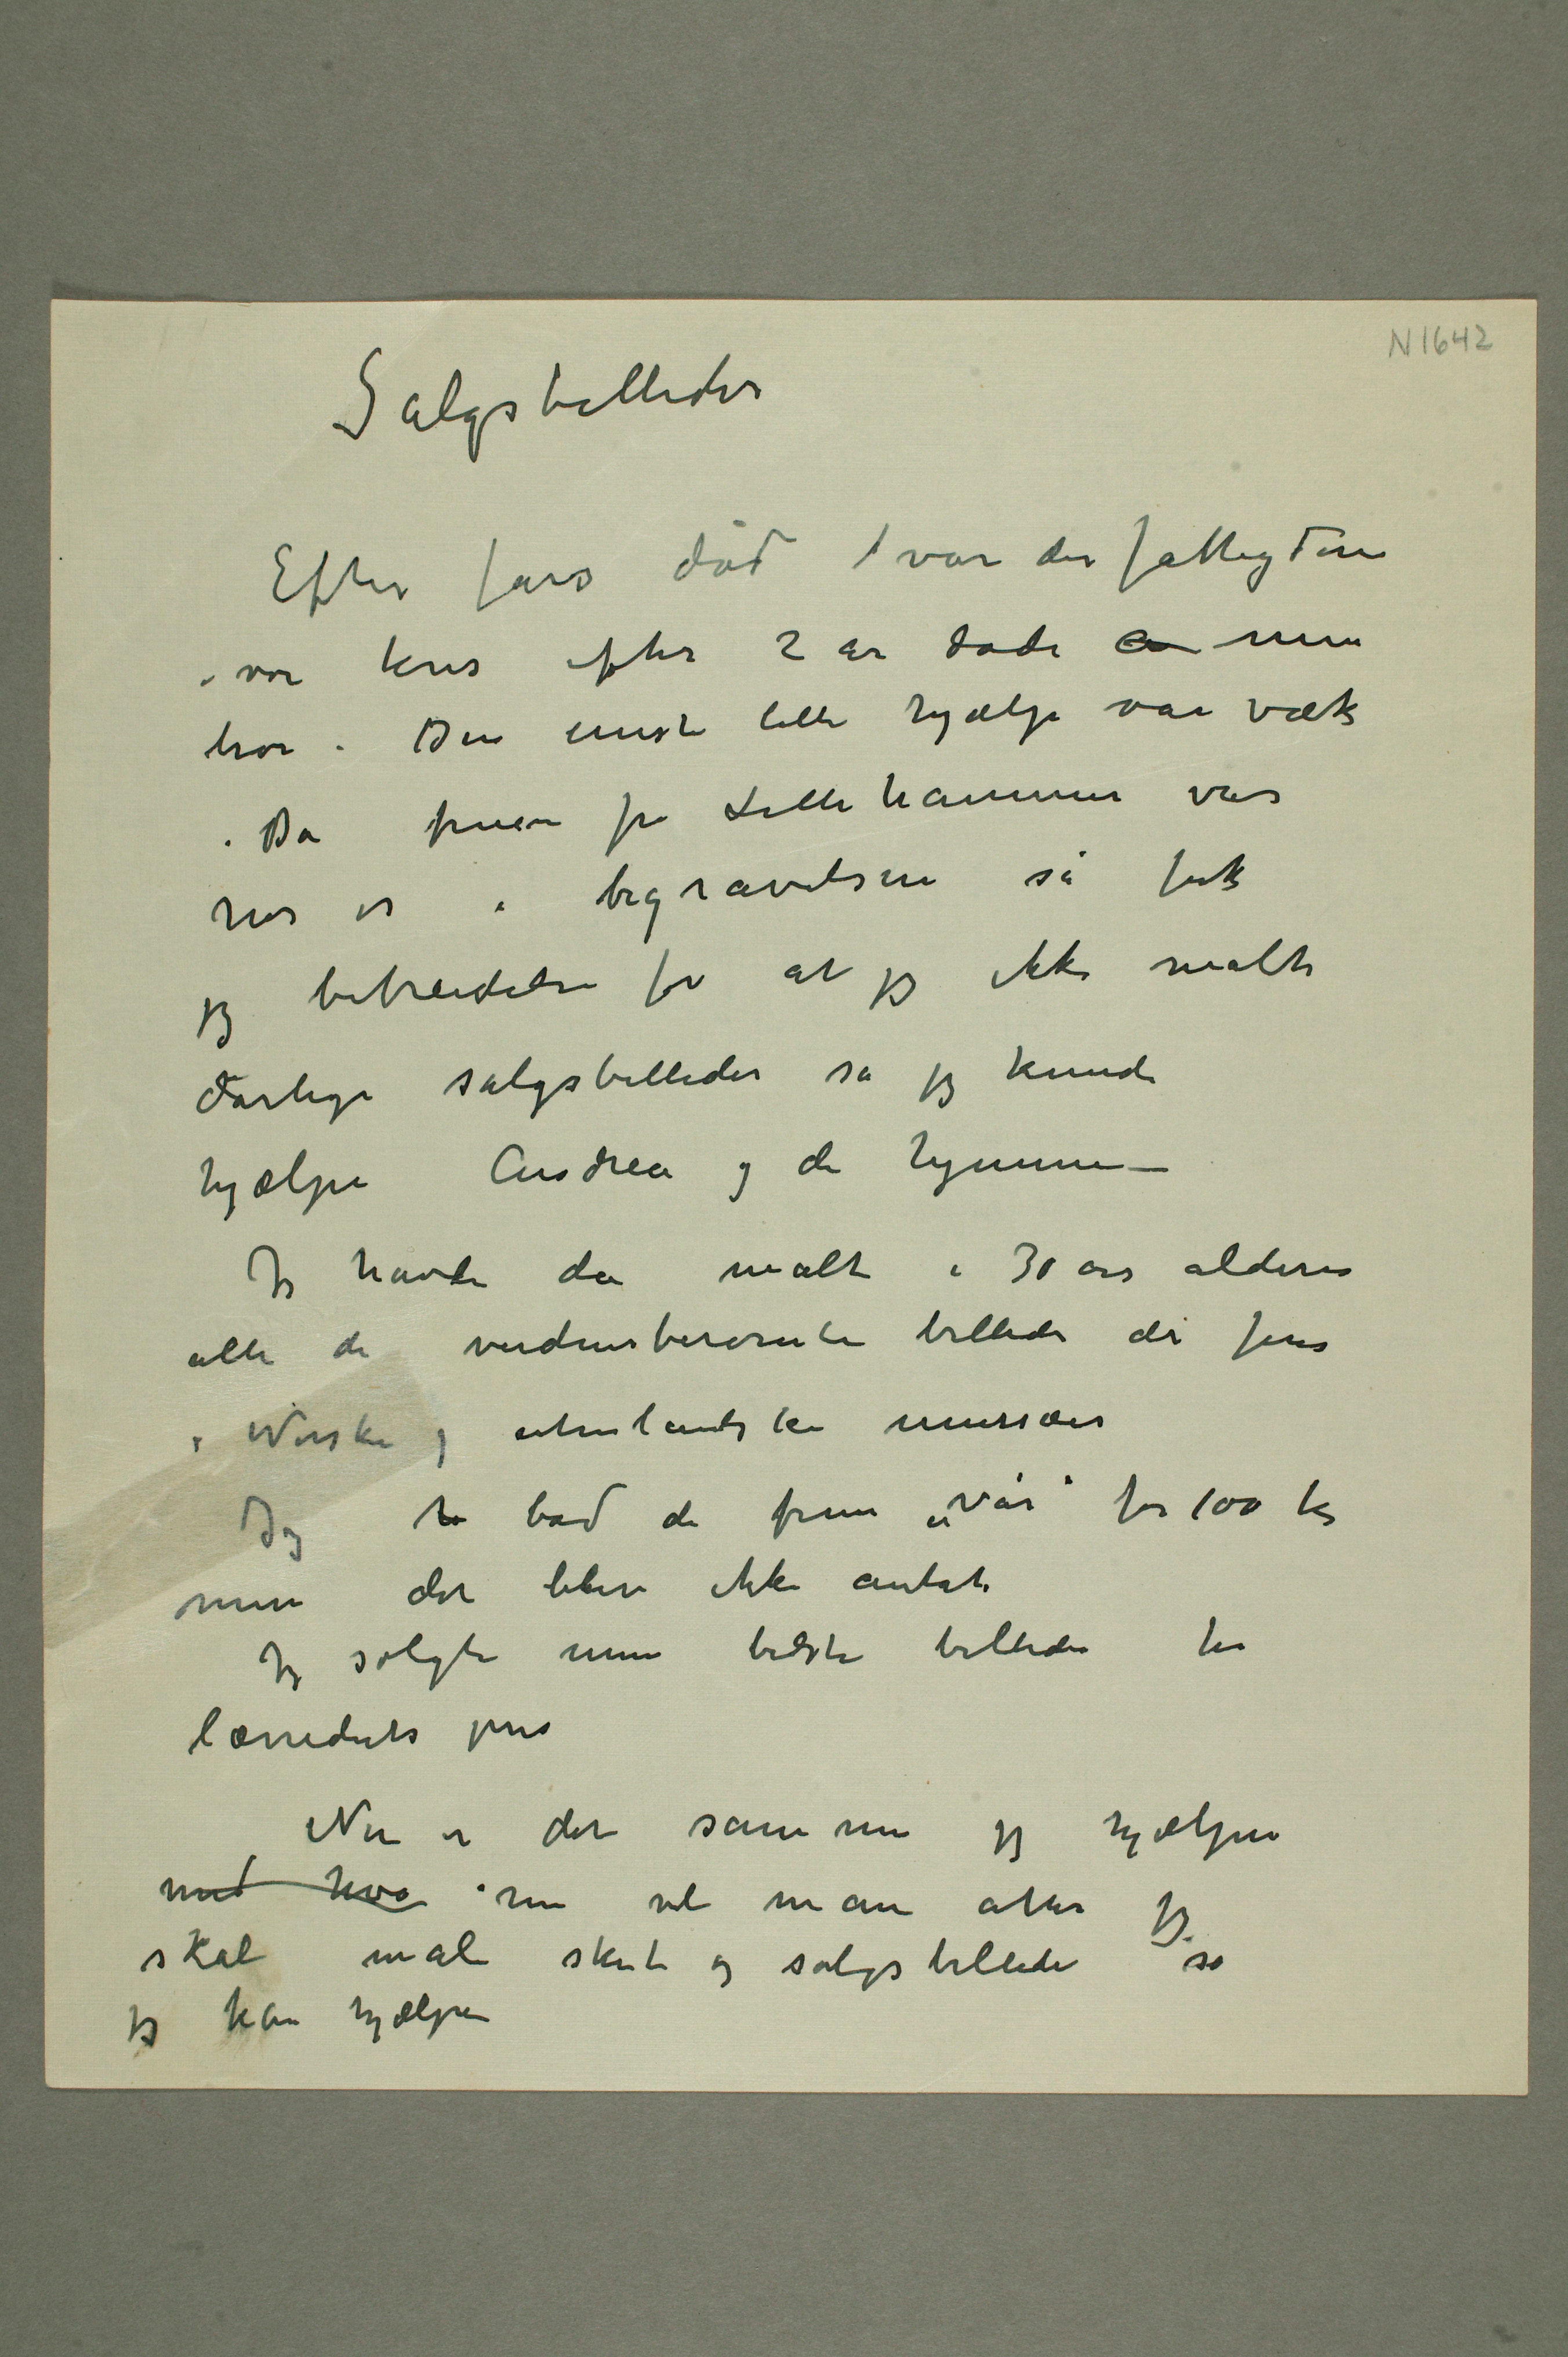 N1642
Salgsbilleder
Efter fars død / var der fattigdom
i vor kres efter 2 år døde min
bror. Den eneste lille hjælp var væk
. Da fruen fra Lillehammer var
hos os i begravelsen så fik
jeg bebreidelse for at jeg ikke malte
dårlige salgsbilleder så jeg kunde
hjælpe Andrea og de hjemme –
Jeg havde da malt i 30 års alderen
alle de verdensberømte billeder der fins
i Norske og utenlandske museer
Jeg bød de frem „Vår" for 100 kr
men det blev ikke antat
Jeg solgte mine bedste billeder for
lærredets pris
Nu er det samme jeg hjælper
med hva nu vil man atter jeg
skal male skidt og salgsbilleder så
jeg kan hjælpe